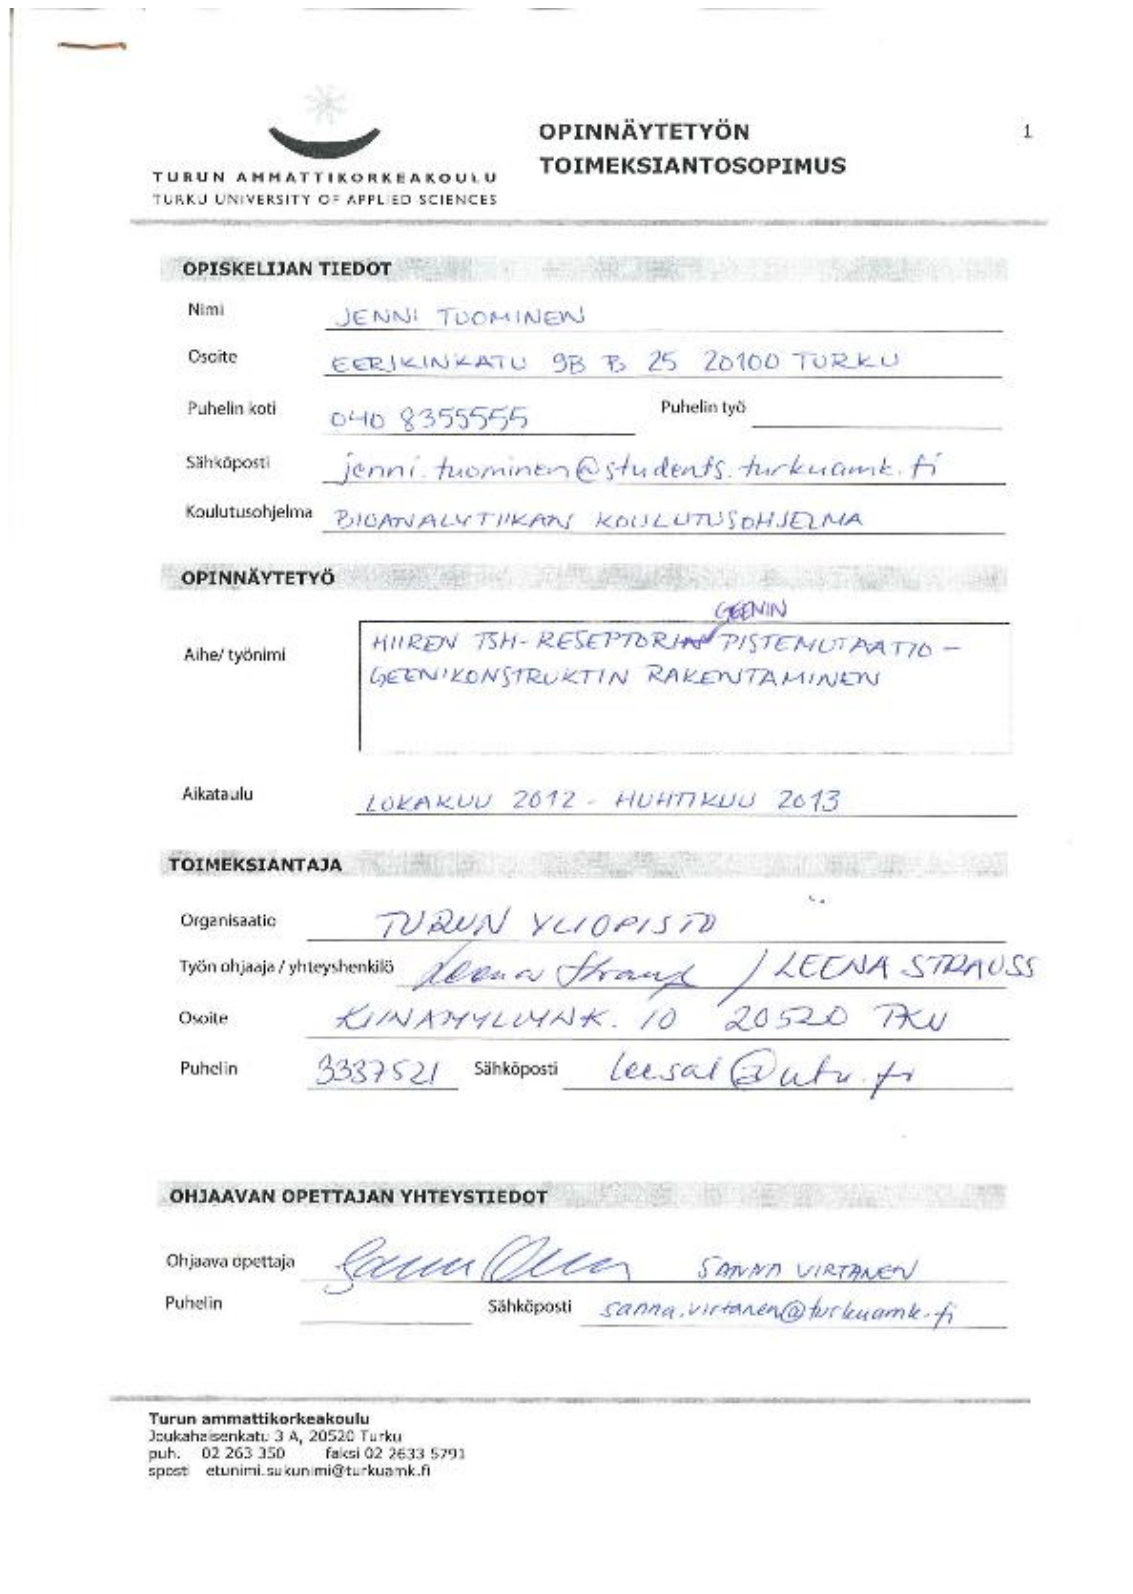 OPINNÄYTETYÖN
TOIMEKSIANTOSOPIMUS
1
TURUN AMMATTIKORKEAKOULU
TURKU UNIVERSITY OF APPLIED SCIENCES
OPISKELIJAN TIEDOT
Nimi JENNI TUOMINEN
Osoite EERIKINKATU 9B B 25 20100 TURKU
Puhelin koti 040 8355555 Puhelin työ
Sähköposti jenni.tuominen@students.turkuamk.fi
Koulutusohjelma BIOANALYTIIKAN KOULUTUSOHJELMA
OPINNÄYTETYÖ
GEENIN
Aihe/ työnimi HIIREN TSH-RESEPTORIN PISTEMUTAATIO-
GEENIKONSTRUKTIN RAKENTAMINEN
Aikataulu LOKAKUU 2012 - HUHTIKUU 2013
TOIMEKSIANTAJA
Organisaatio TURUN YLIOPISTO
Työn ohjaaja / yhteyshenkilö Leena Strauss / LEENA STRAUSS
Osoite KIINAMYLLYNK. 10 20520 TKU
Puhelin 3337521 Sähköposti leesal@utu.fi
OHJAAVAN OPETTAJAN YHTEYSTIEDOT
Ohjaava opettaja SANNA VIRTANEN
Puhelin Sähköposti sanna.virtanen@turkuamk.fi
Turun ammattikorkeakoulu
Joukahaisenkatu 3 A, 20520 Turku
puh. 02 263 350 faksi 02 2633 5791
sposti etunimi.sukunimi@turkuamk.fi